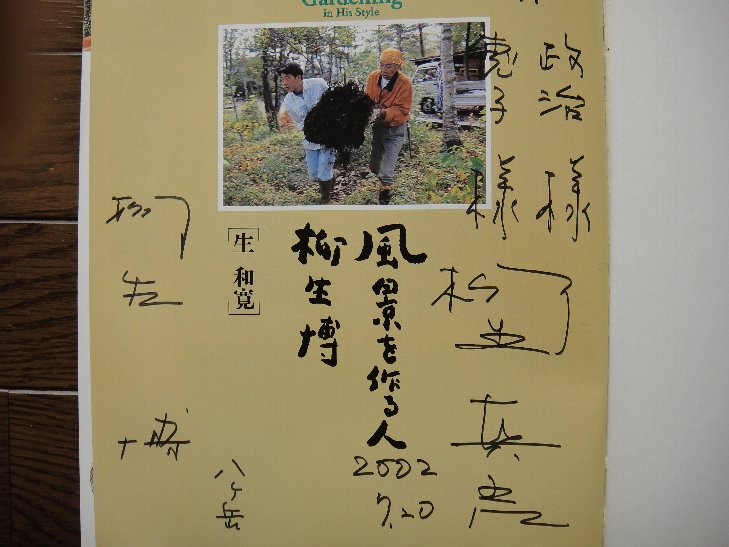 Gardening
in His Style
政治様
恵子様
風景を作る人
柳生博
[生和寛]
柳生
真吾
2002
7.20
柳生
博
八ヶ岳